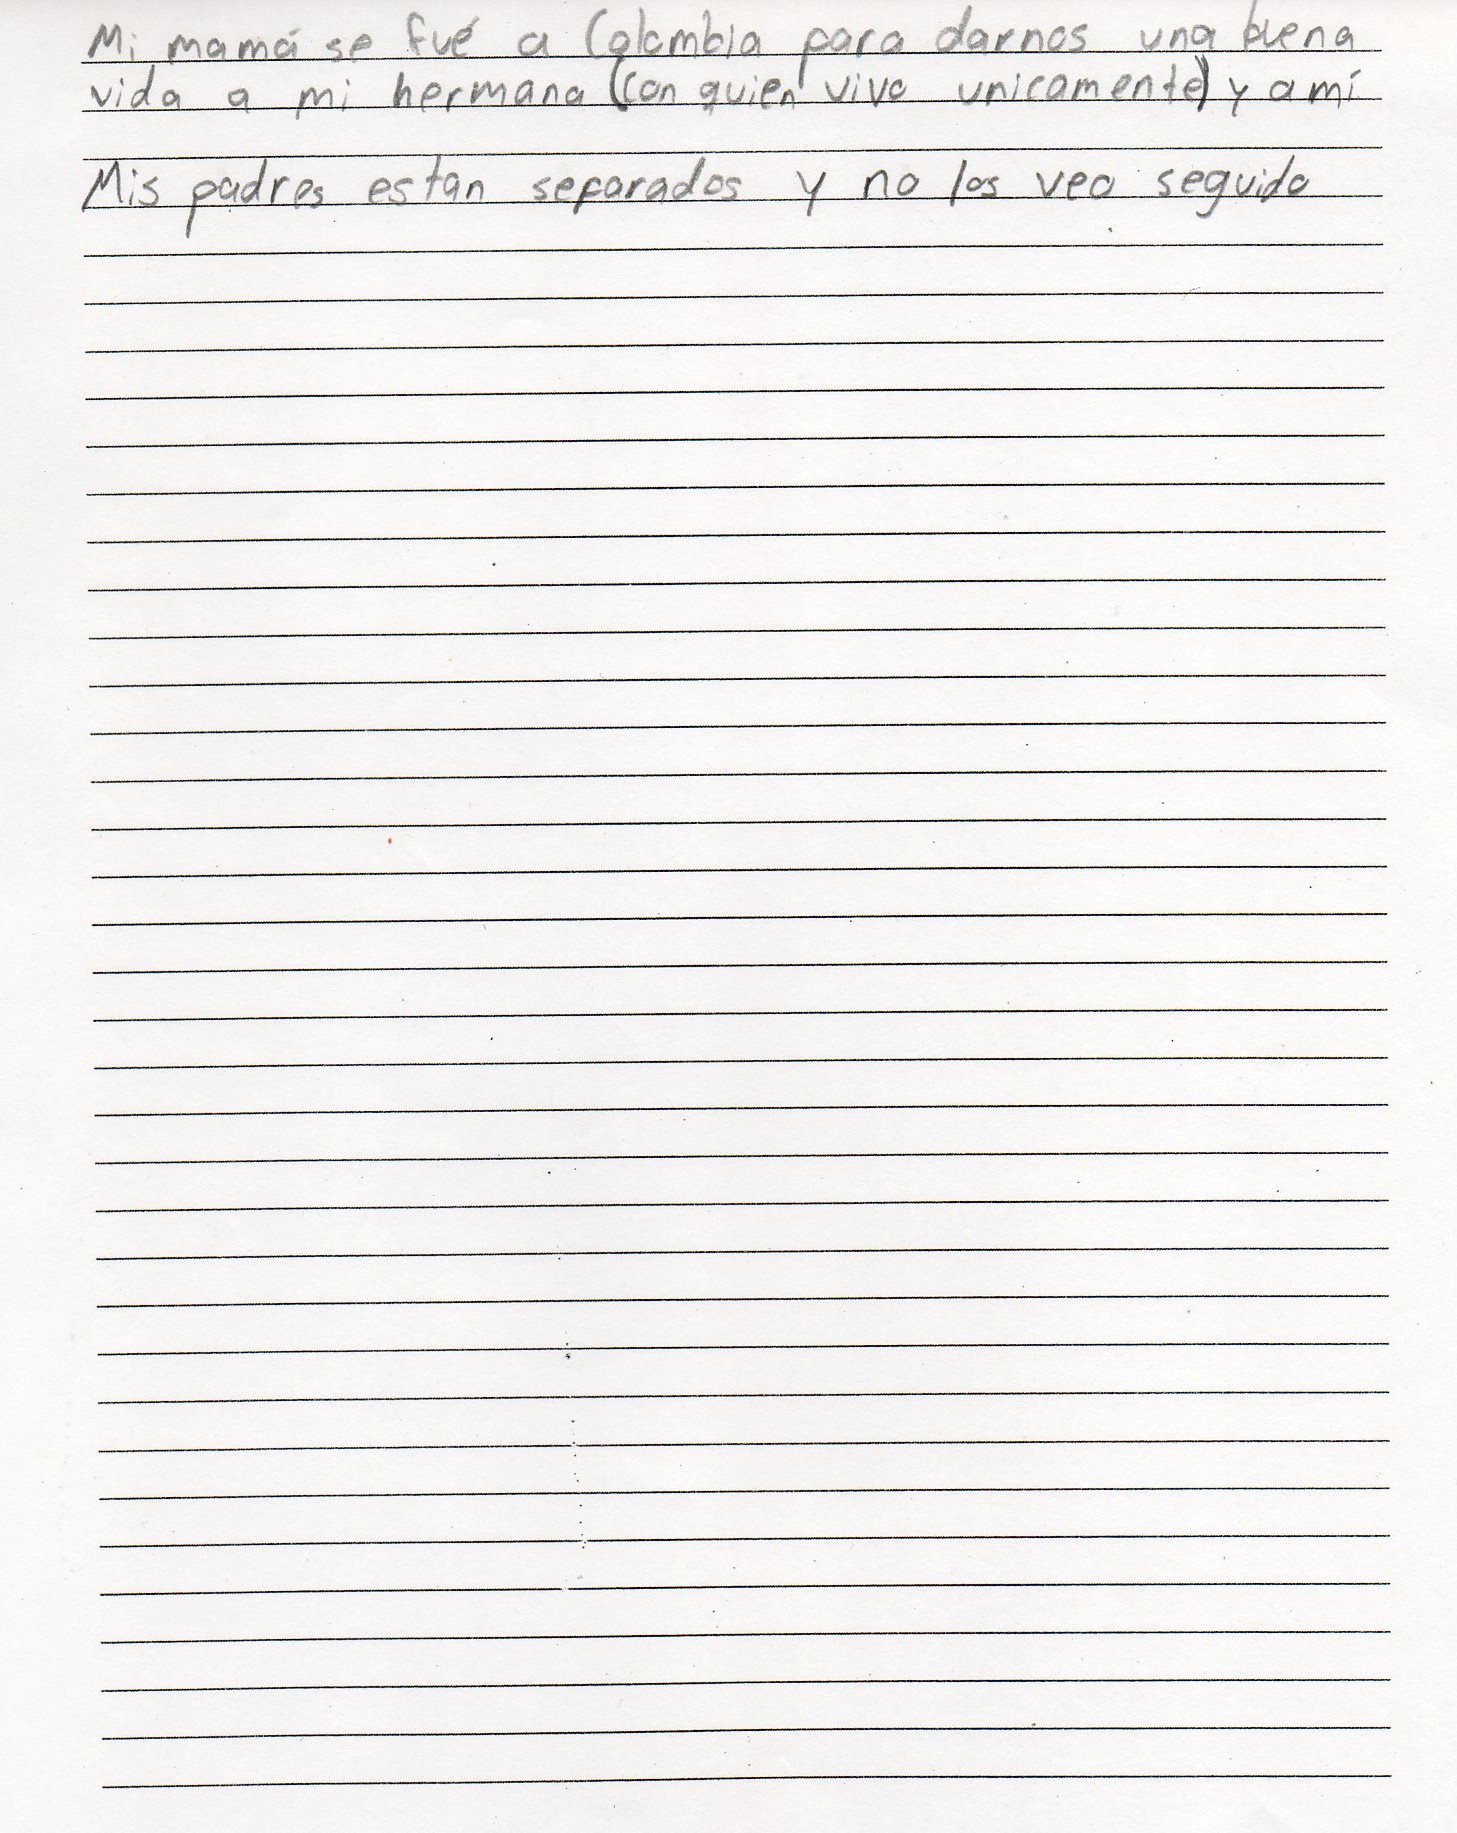 Mi mamá se fué a Colombia para darnos una buena
vida a mi hermana (con quien vivo unicamente) y a mí
Mis padres estan separados y no los veo seguido